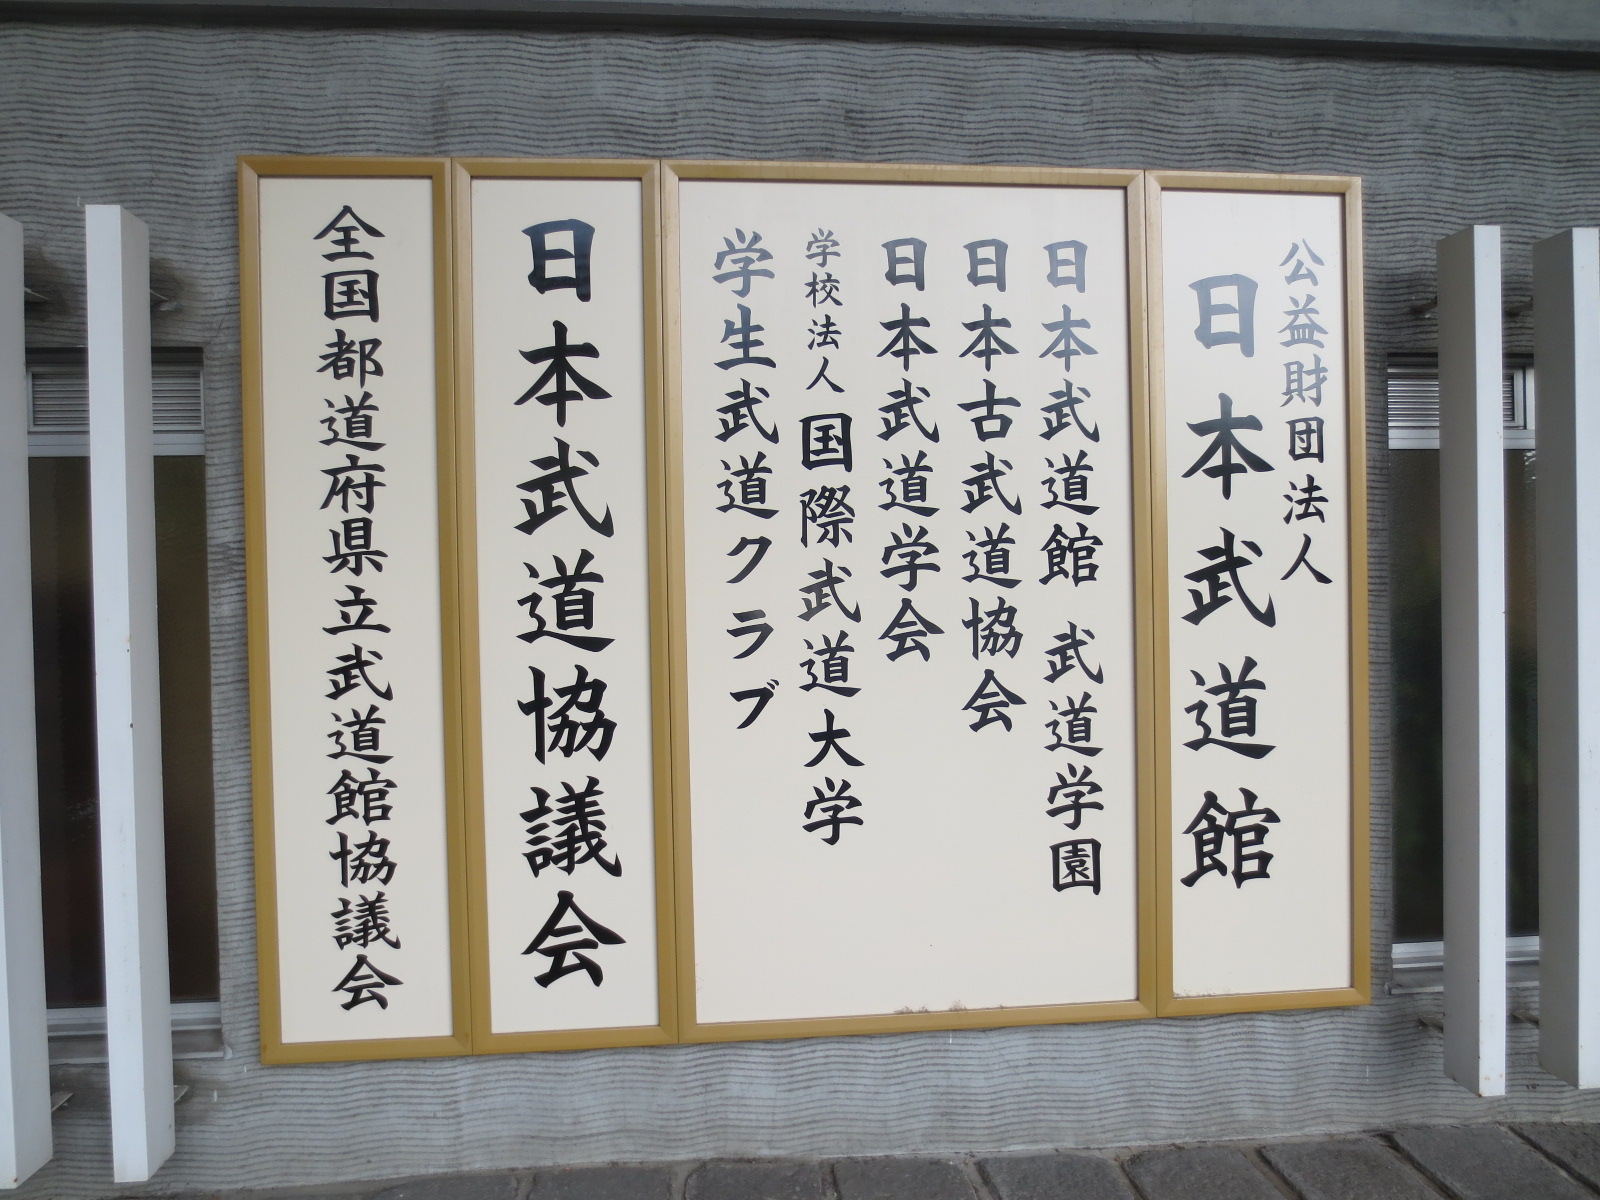 公益財団法人
日本武道館
日本武道館 武道学園
日本古武道協会
日本武道学会
学校法人 国際武道大学
学生武道クラブ
日本武道協議会
全国都道府県立武道館協議会